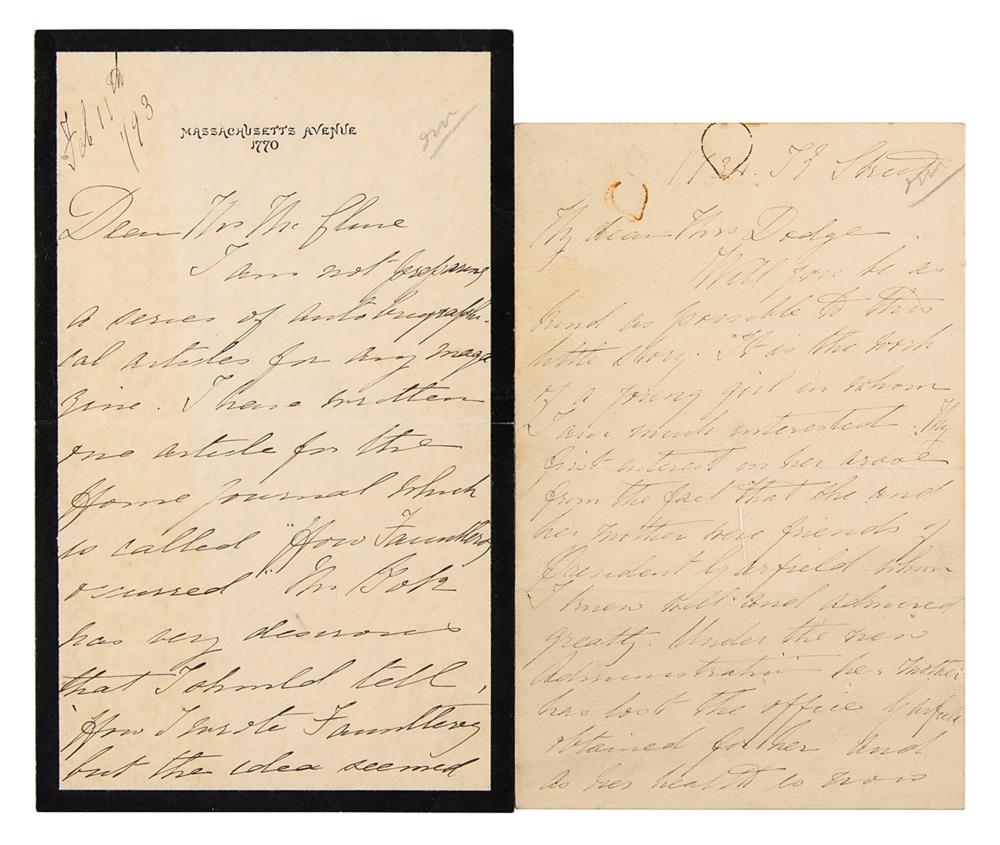 Feb 11th
/93
MASSACHUSETTS AVENUE
1770
Dear Mr Mc Clure
I am not preparing
a series of autobiographi-
cal articles for any maga
zine. I have written
one article for the
Home Journal which
is called "How Fauntleroy
occurred" Mr Bok
was very desirous
that I should tell,
'How I wrote Fauntleroy
but the idea seemed
Street
My dear Mrs Dodge.
Will you be as
kind as possible to this
little story. It is the work
of a young girl in whom
I am much interested. My
first interest in her arose
from the fact that she and
her mother were friends of
President Garfield whom
I knew well and admired
greatly. Under the new
Administration her mother
has lost the office Garfield
obtained for her and
as her health is now